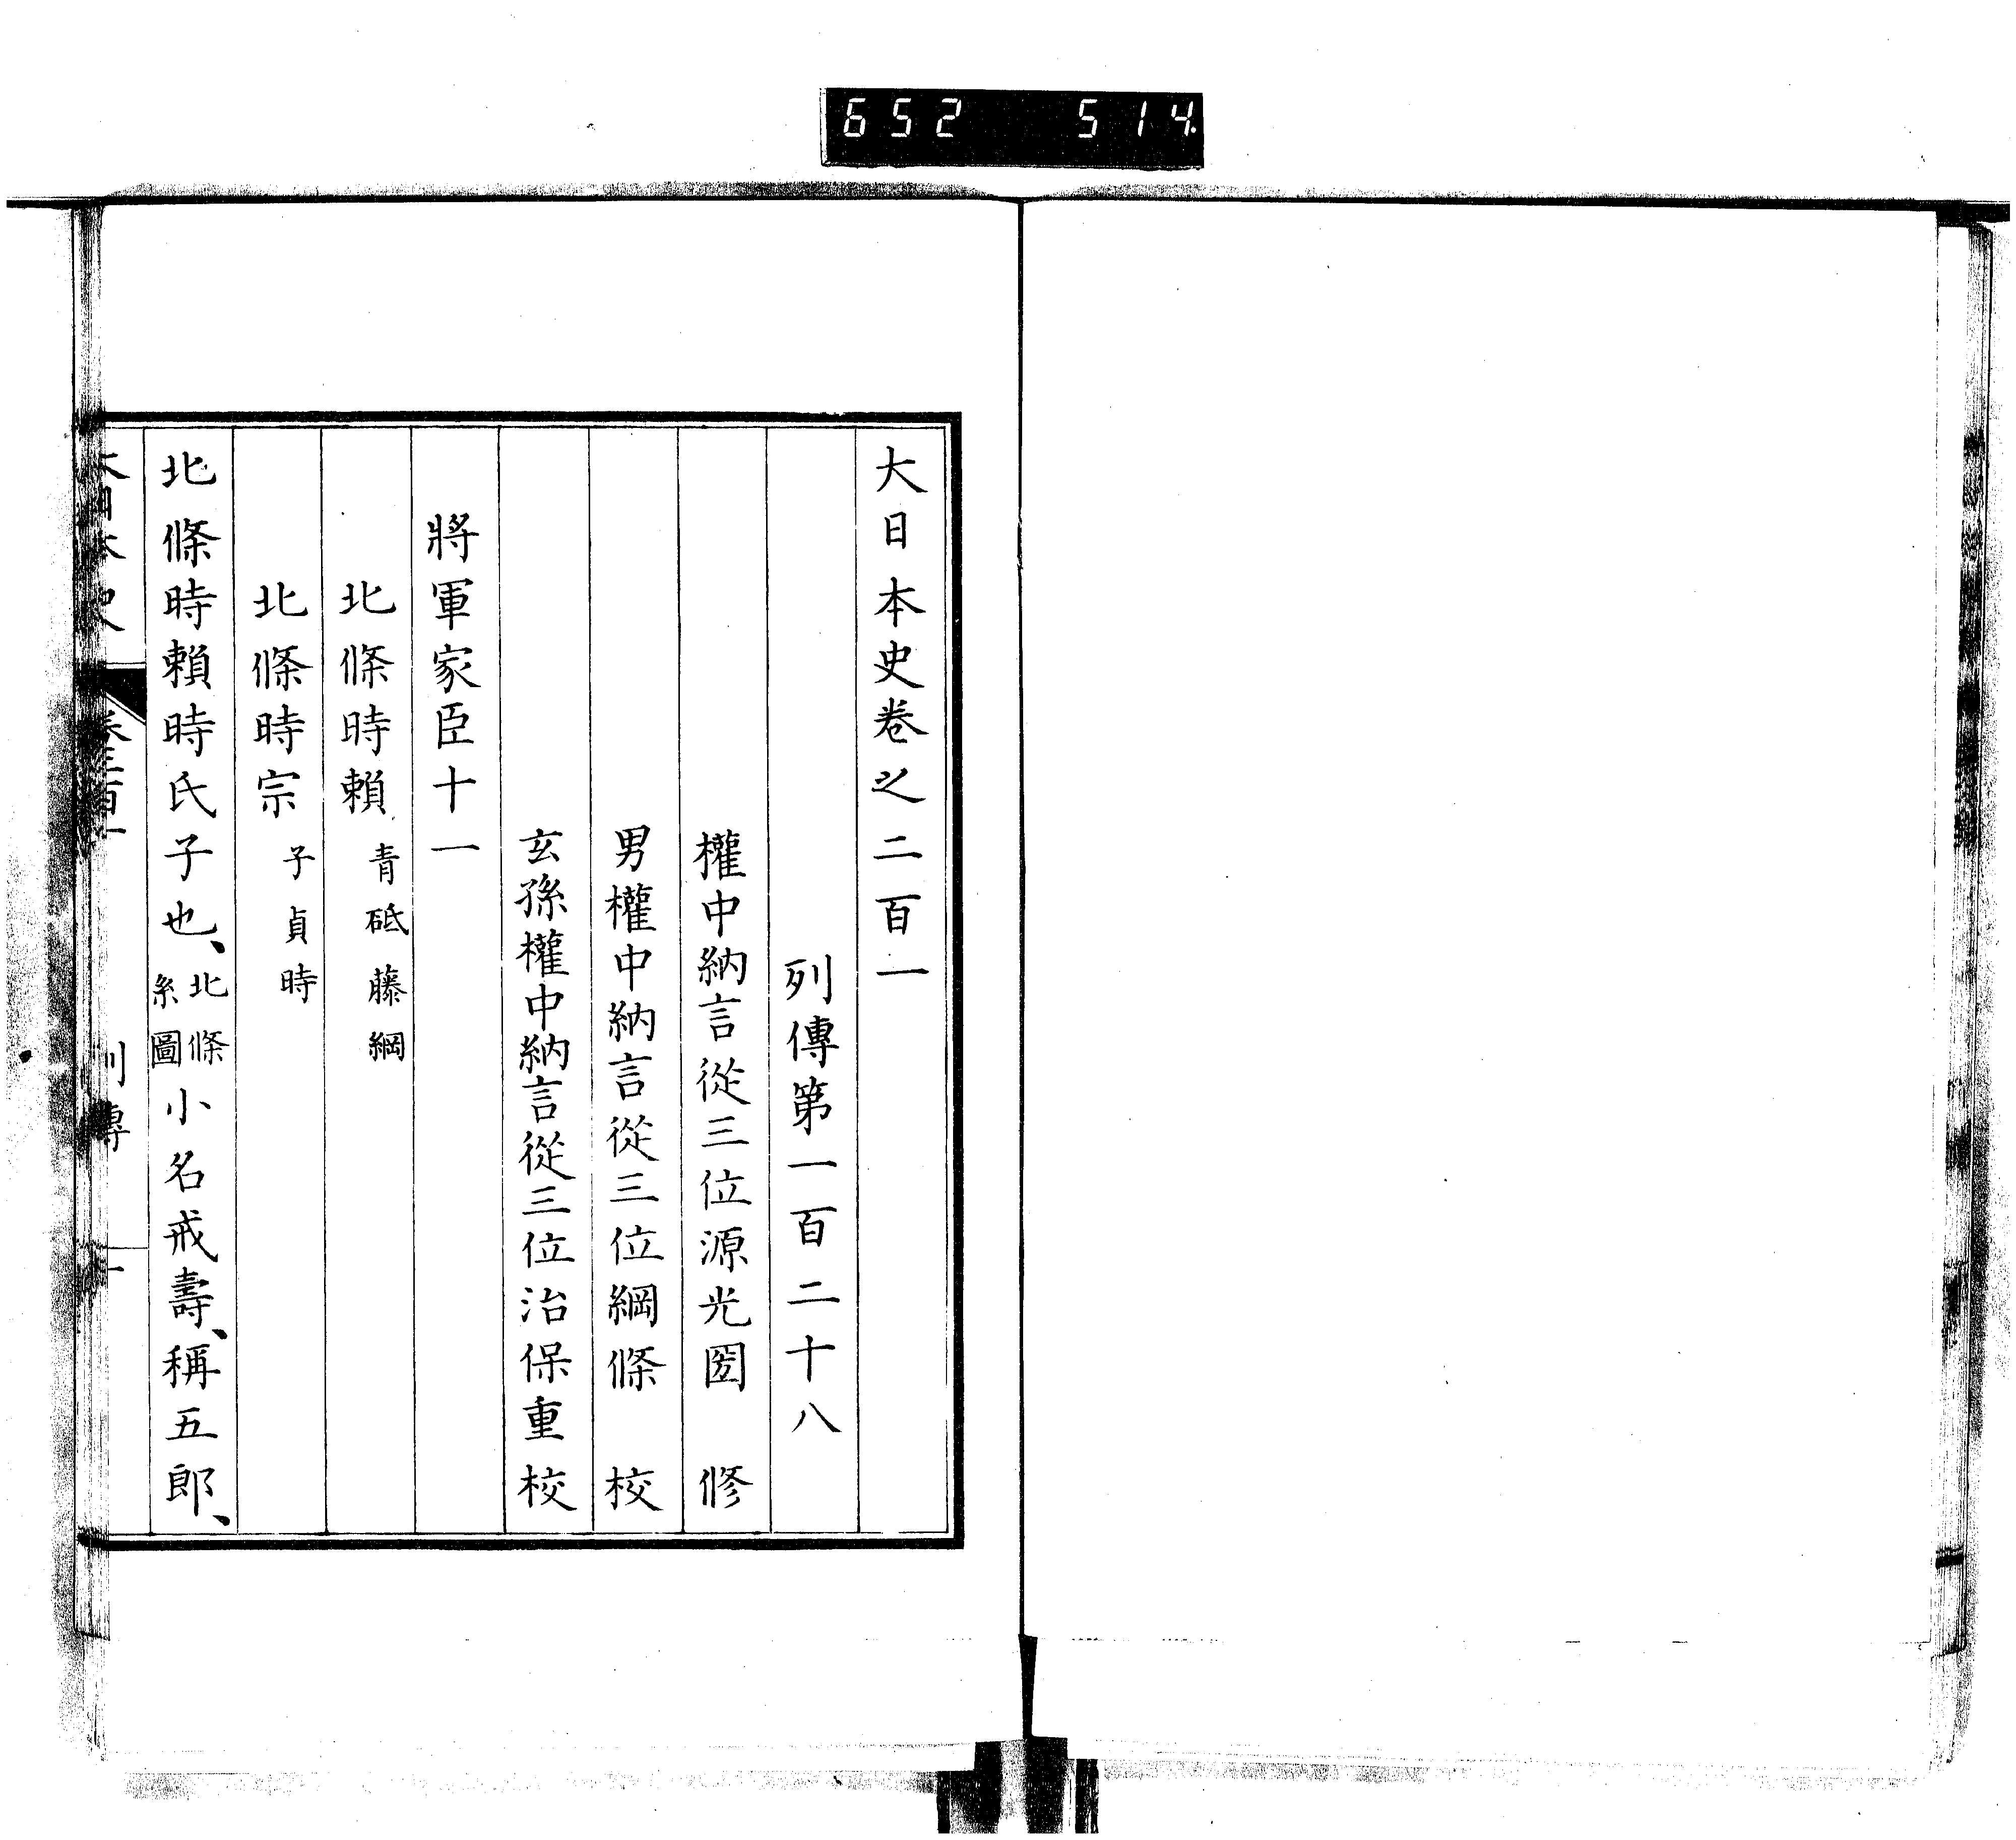 652 514
大日本史卷之二百一
列傳第一百二十八
權中納言從三位源光圀 修
男權中納言從三位綱條 校
玄孫權中納言從三位治保重校
將軍家臣十一
北條時賴 青砥藤綱
北條時宗 子貞時
北條時賴時氏子也、北條系圖小名戒壽、稱五郎、